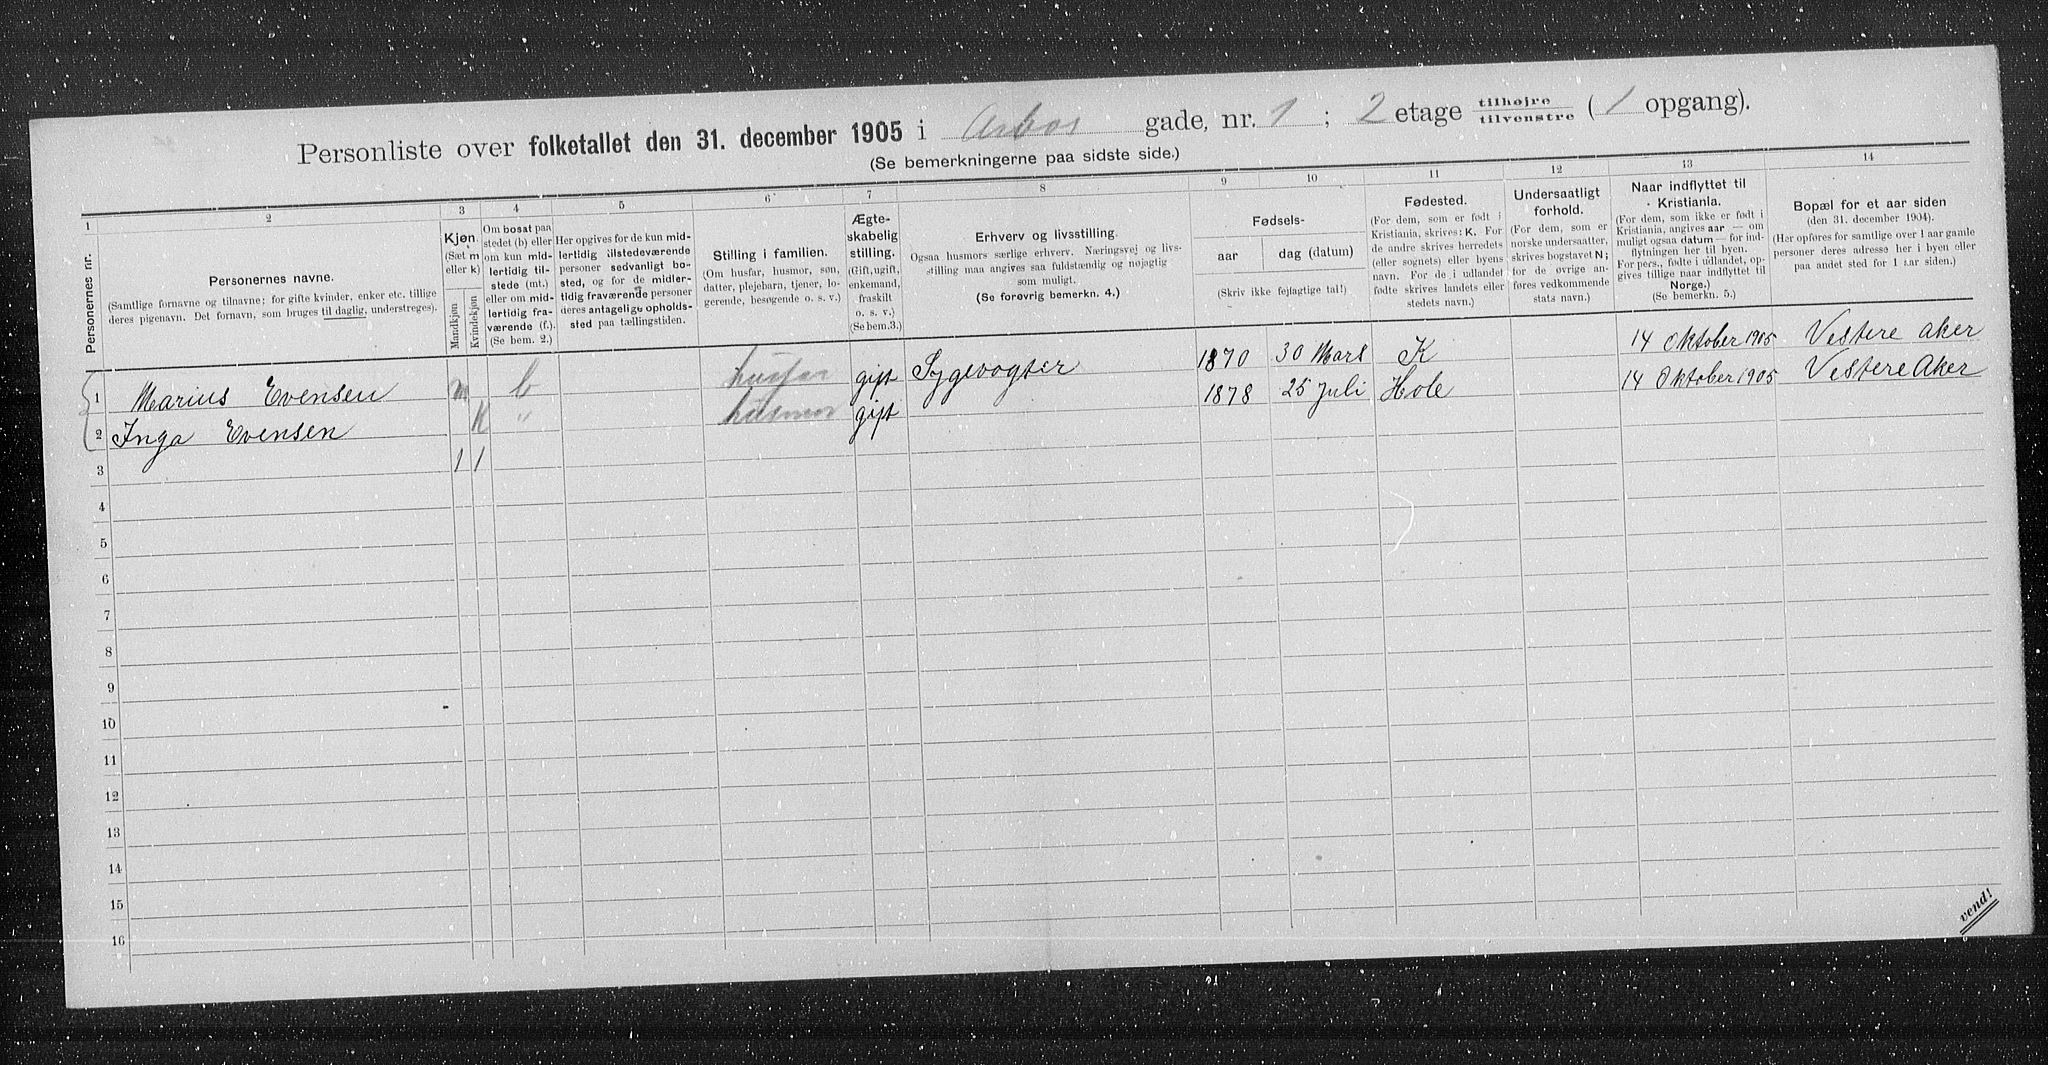 Personliste over folketallet den 31. december 1905 i Arbos gade, nr. 1 ; 2 etage tilhøjre tilvenstre ( 1 opgang).
(Se bemerkningerne paa sidste side.)
1 2 3 4 5 6 7 8 9 10 11 12 13 14
Personernes nr.
Personernes navne.
(Samtlige fornavne og tilnavne; for gifte kvinder, enker etc. tillige
deres pigenavn. Det fornavn, som bruges til daglig, understreges).
Kjøn.
(Sæt m
eller k)
Mandkjøn
Kvindekjøn
Om bosat paa
stedet (b) eller
om kun mid-
lertidig til-
stede (mt.)
eller om mid-
lertidig fra-
værende (f.).
(Se bem. 2.)
Her opgives for de kun mid-
lertidig tilstedeværende
personer sedvanligt bo-
sted, og for de midler-
tidig fraværende personer
deres antagelige opholds-
sted paa tællingstiden.
Stilling i familien.
(Om husfar, husmor, søn,
datter, plejebarn, tjener, lo-
gerende, besøgende o. s. v.)
Ægte-
skabelig
stilling.
(Gift, ugift,
enkemand,
fraskilt
o. s. v.)
(Se bem.3.)
Erhverv og livsstilling.
Ogsaa husmors særlige erhverv. Næringsvej og livs-
stilling maa angives saa fuldstændig og nøjagtig
som muligt.
(Se forøvrig bemerkn. 4.)
Fødsels-
aar
dag (datum)
(Skriv ikke fejlagtige tal!)
Fødested.
(For dem, som er født i
Kristiania, skrives: K. For
de andre skrives herredets
(eller sognets) eller byens
navn. For de i udlandet
fødte skrives landets eller
stedets navn.)
Undersaatligt
forhold.
(For dem, som er
norske undersaatter,
skrives bogstavet N;
for de øvrige an-
føres vedkommende
stats navn.)
Naar indflyttet til
Kristiania.
(For dem, som ikke er født i
Kristiania, angives aar — om
muligt ogsaa datum — for ind-
flytningen her til byen.
For pers., fødte i udlandet, op-
gives tillige naar indflyttet til
Norge.)
(Se bemerkn. 5.)
Bopæl for et aar siden
(den 31. december 1904).
(Her opføres for samtlige over 1 aar gamle
personer deres adresse her i byen eller
paa andet sted for 1 aar siden.)
1 Marius Evensen m b husfar gift Sygevogter 1870 30 Mars K 14 Oktober 1905 Vestere Aker
2 Inga Evensen k " husmor gift 1878 25 Juli Hole 14 Oktober 1905 Vestere Aker
3 1 1
4
5
6
7
8
9
10
11
12
13
14
15
16
vend!